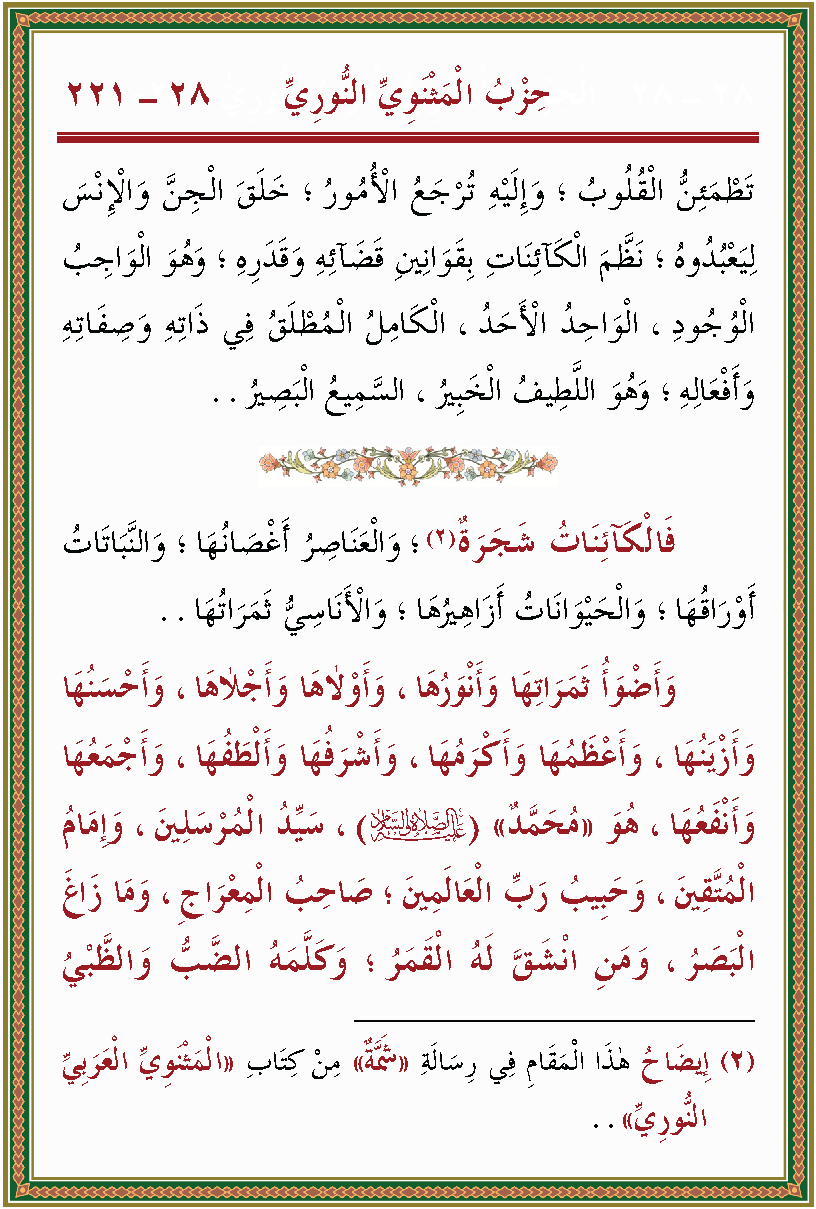 حِزْبُ الْمَثْنَوِيِّ النُّورِيِّ ٢٨ – ٢٢١
تَطْمَئِنُّ الْقُلُوبُ ؛ وَإِلَيْهِ تُرْجَعُ الْأُمُورُ ؛ خَلَقَ الْجِنَّ وَالْإِنْسَ
لِيَعْبُدُوهُ ؛ نَظَّمَ الْكَآئِنَاتِ بِقَوَانِينِ قَضَآئِهِ وَقَدَرِهِ ؛ وَهُوَ الْوَاجِبُ
الْوُجُودِ ، الْوَاحِدُ الْأَحَدُ ، الْكَامِلُ الْمُطْلَقُ فِي ذَاتِهِ وَصِفَاتِهِ
وَأَفْعَالِهِ ؛ وَهُوَ اللَّطِيفُ الْخَبِيرُ ، السَّمِيعُ الْبَصِيرُ . .
فَالْكَآئِنَاتُ شَجَرَةٌ (٢) ؛ وَالْعَنَاصِرُ أَغْصَانُهَا ؛ وَالنَّبَاتَاتُ
أَوْرَاقُهَا ؛ وَالْحَيْوَانَاتُ أَزَاهِيرُهَا ؛ وَالْأَنَاسِيُّ ثَمَرَاتُهَا . .
وَأَضْوَأُ ثَمَرَاتِهَا وَأَنْوَرُهَا ، وَأَوْلَاهَا وَأَجْلَاهَا ، وَأَحْسَنُهَا
وَأَزْيَنُهَا ، وَأَعْظَمُهَا وَأَكْرَمُهَا ، وَأَشْرَفُهَا وَأَلْطَفُهَا ، وَأَجْمَعُهَا
وَأَنْفَعُهَا ، هُوَ «مُحَمَّدٌ» (عَلَيْهِ الصَّلَاةُ وَالسَّلَامُ) ، سَيِّدُ الْمُرْسَلِينَ ، وَإِمَامُ
الْمُتَّقِينَ ، وَحَبِيبُ رَبِّ الْعَالَمِينَ ؛ صَاحِبُ الْمِعْرَاجِ ، وَمَا زَاغَ
الْبَصَرُ ، وَمَنِ انْشَقَّ لَهُ الْقَمَرُ ؛ وَكَلَّمَهُ الضَّبُّ وَالظَّبْيُ
(٢) إِيضَاحُ هٰذَا الْمَقَامِ فِي رِسَالَةِ «شَمَّةٌ» مِنْ كِتَابِ «الْمَثْنَوِيِّ الْعَرَبِيِّ
النُّورِيِّ» . .